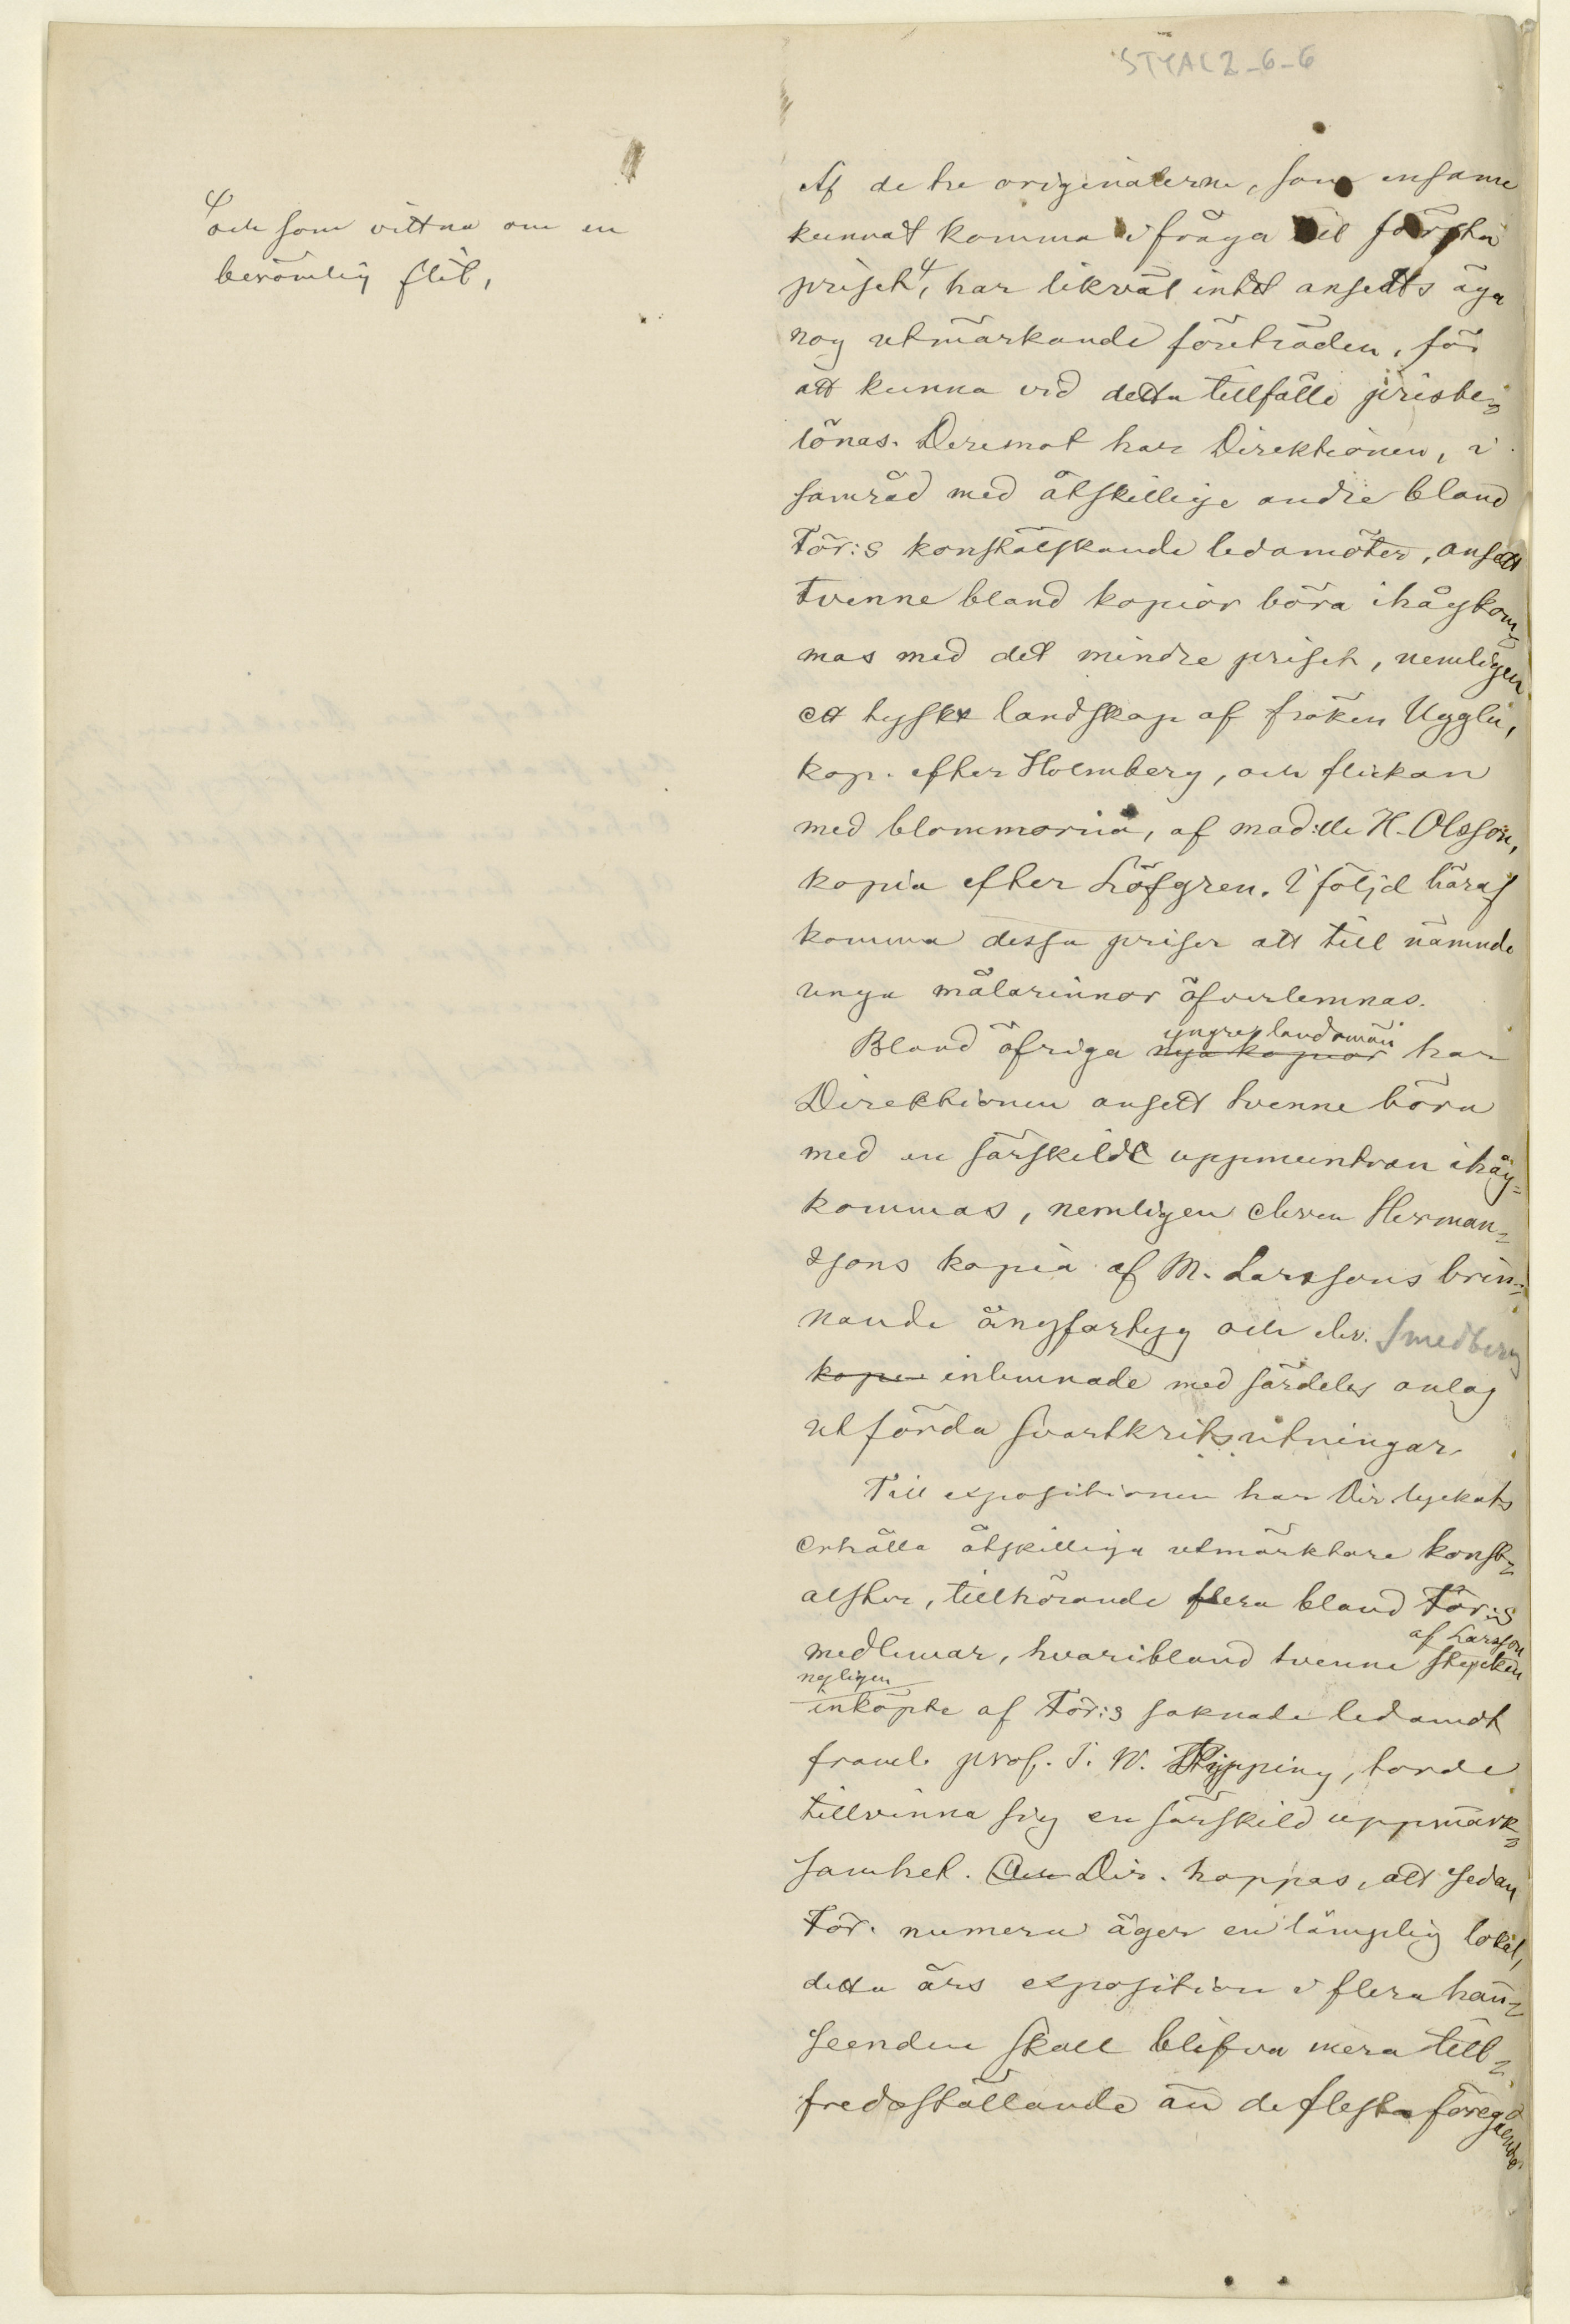 STYAL 2-6-6
och som vittna om en
berömlig flit,
Af de tre originalerne, som ensame
kunnat komma i fråga till första
priset, har likväl intet ansetts äga
nog utmärkande företräden, för
att kunna vid detta tillfälle prisbe=
lönas. Deremot har Direktionen, i
samråd med åtskillige andre bland
För:s konstälskande ledamöter, ansett
tvenne bland kopior böra ihågkom=
mas med det mindre priset, nemligen
ett tyskt landskap af fröken Uggla,
kop. efter Holmberg, och flickan
med blommorna, af mad:lle H. Olsson,
kopia efter Löfgren. I följd häraf
komma dessa priser att till nämnde
unga målarinnor öfverlemnas.
yngre landsmän
Bland öfriga nya kopior har
Direktionen ansett tvenne böra
med en särskild uppmuntran ihåg=
kommas, nemligen eleven Herman=
sons kopia af M. Larssons brin=
nande ångfartyg och elev. Smedberg
kopi inlemnade med särdeles anlag
utförda svartkritsritningar.
Till expositionen har Dir lyckats
erhålla åtskilliga utmärktare konst=
alster, tillhörande flera bland För:s
af Larsson
medlemmar, hvaribland tvenne stycken
nyligen
inköpte af För:s saknade ledamot
framl. prof. J. W. Pipping, torde
tillvinna sig en särskild uppmärk=
samhet. Dir. hoppas, att sedan
För. numera äger en lämplig lokal,
detta års exposition i flera hän=
seenden skall blifva mera till=
fredsställande än de flesta föregående